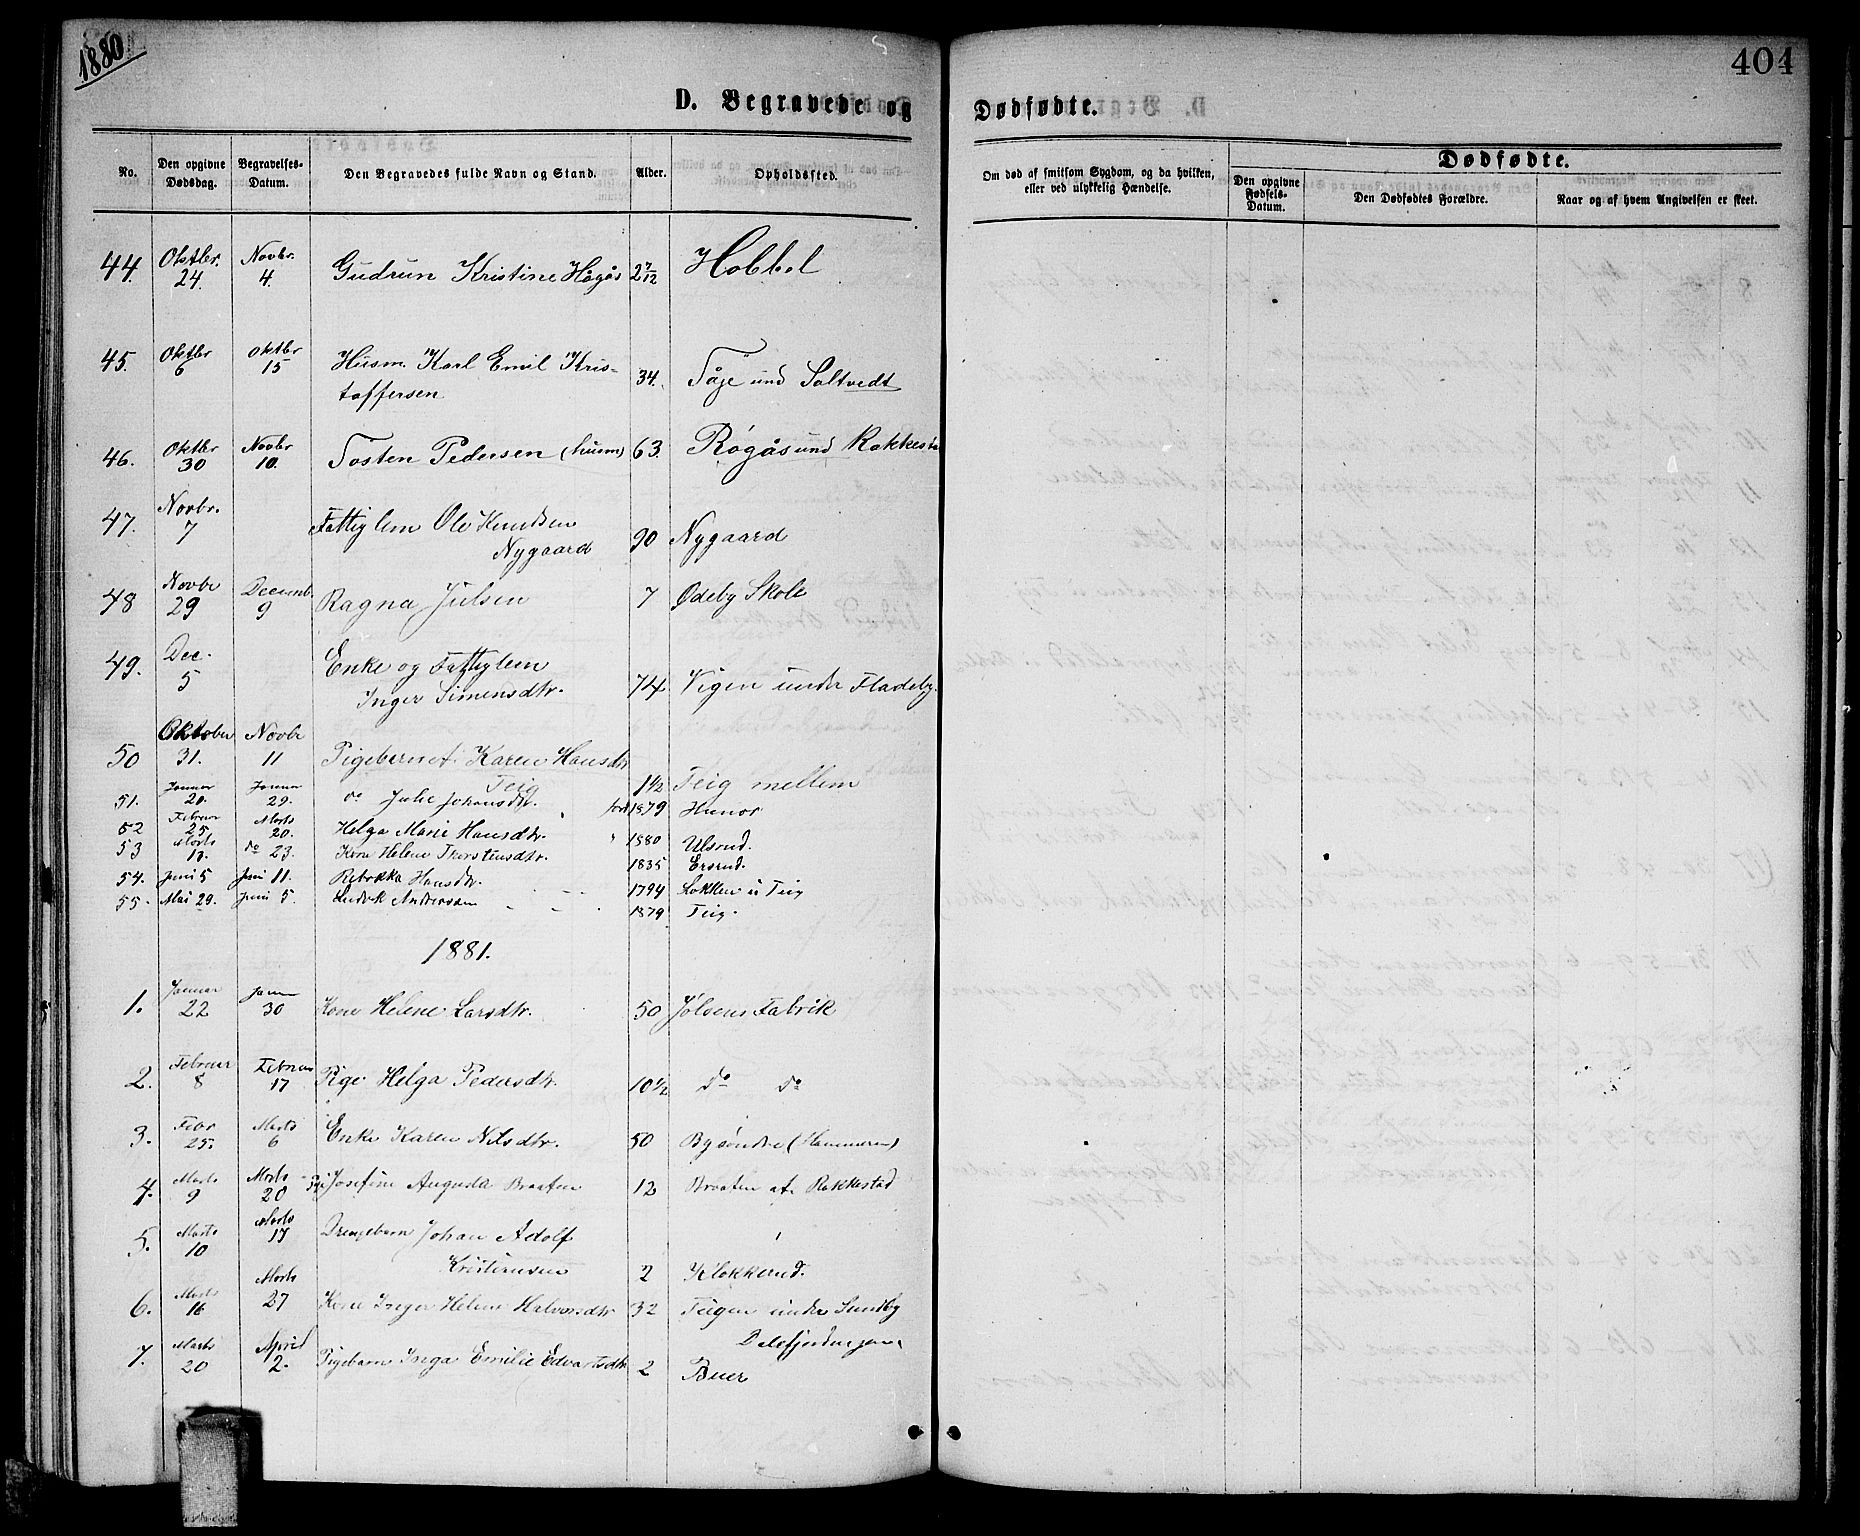 1880
404
D. Begravede og Dødfødte.
No. Den opgivne Dødsdag. Begravelses-Datum. Den Begravedes fulde Navn og Stand. Alder. Opholdssted.
Om død af smitsom Sygdom, og da hvilken, eller ved ulykkelig Hændelse.
Dødfødte.
Den opgivne Fødsels-Datum. Den Dødfødtes Forældre. Naar og af hvem Angivelsen er skeet.
44. Oktbr. 24. Novbr. 4. Gudrun Kristine Högås 2 7/12 Hobbel
45. Oktbr 6 Oktbr 15 Husm. Karl Emil Kris-
toffersen 34. Tåje und Saltvedt
46. Oktbr 30 Novbr 10. Tosten Pedersen (husm) 63. Røgås und Rakkesta
47. Novbr. 7 Fattiglem Ole Knudsen
Nygaard 90 Nygaard
48 Novbr 29 Decemb. 9 Ragna Julsen 7 Ødeby Skole
49. Dec. 5 Enke og Fattiglem
Inger Simensdtr. 74. Vigen under Fladeby.
50 Oktober 31. Novbr 11 Pigebarnet Karen Hansdtr
Teig 1 1/2 Teig mellem
51. Januar 20. Januar 29. do Julie Johansdtr. født 1879 Hunor
52 Februar 25 Marts 20. Helga Marie Hansdtr. " 1880 Ulsrud.
53 Marts 13. do 23. Kone Helene Thorstensdtr. 1835 Ersrud.
54. Juni 5 Juni 11. Rebekka Hansdtr. 1794 Løkken u Teig
55. Mai 29. Juni 5. Ludvk Anderssen 1879 Teig.
1881.
1. Januar 22 Januar 30 Kone Helene Larsdtr. 50 Jølsens Fabrik
2. Februar 8 Februar 17 Pige Helga Pedersdtr. 10 1/2 do do
3. Febr 25. Marts 6 Enke Karen Nilsdtr. 50 By søndre (Hammeren)
4. Marts 9 Marts 20 Josefine Augusta Braaten 12 Braaten at. Rakkestad
5. Marts 10 Marts 17 Drengebarn Johan Adolf
Kristiansen 2 Klokkerud.
6. Marts 16 Marts 27 Kone Inger Helene Halvorsdtr 32 Teigen under Sundby
7. Marts 20 April 2. Pigebarn Inga Emilie Edvartsdtr 2 Buer